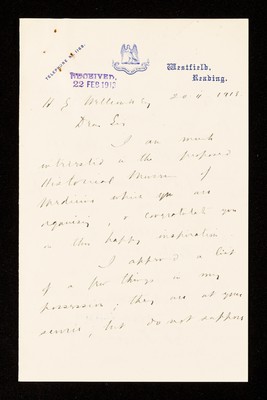 TELEPHONE Nº
RECEIVED,
22 FEB 1913
Westfield,
Reading.
Dear Sir
I am much
interested in the proposed
Historical Museum of
Medicine which you are
organising, & congratulate you
on this happy inspiration
I append a list
of a few things in my
possession; they are at your
service, but do not suppose